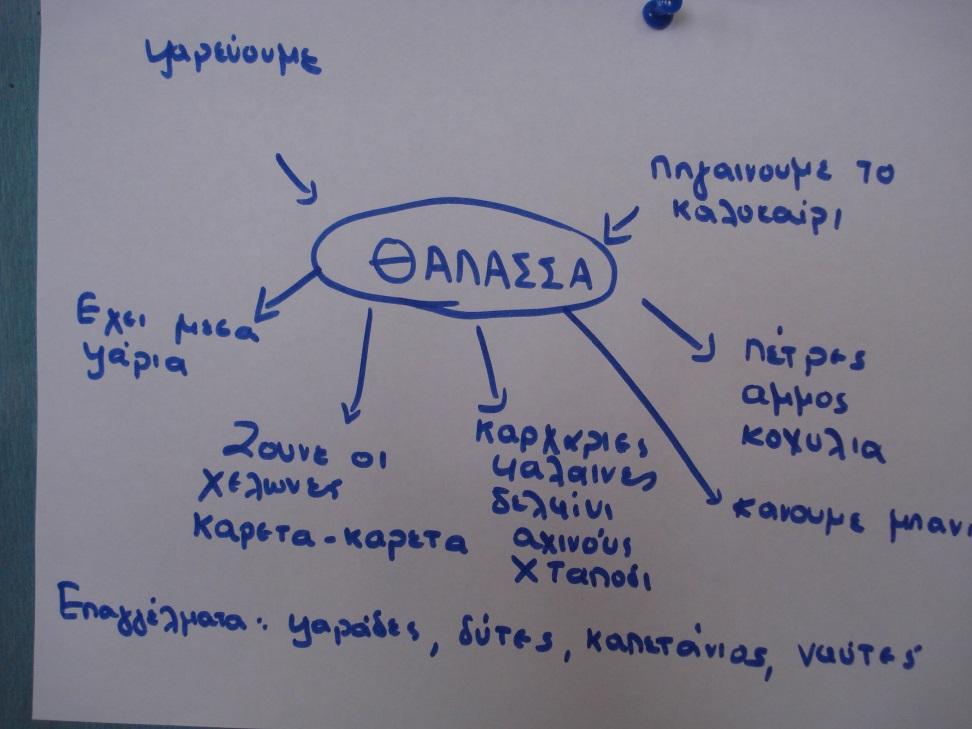 ψαρεύουμε
Πηγαινουμε το
καλοκαίρι
ΘΑΛΑΣΣΑ
Εχει μεσα
ψάρια
Πέτρες
αμμος
κοχυλια
Ζουνε οι
χελωνες
καρετα-καρετα
καρχαριες
φαλαινες
δελφίνι
αχινούς
χταποδι
κανουμε μπανι
Επαγγέλματα: ψαράδες, δύτες, καπετάνιος, ναύτες